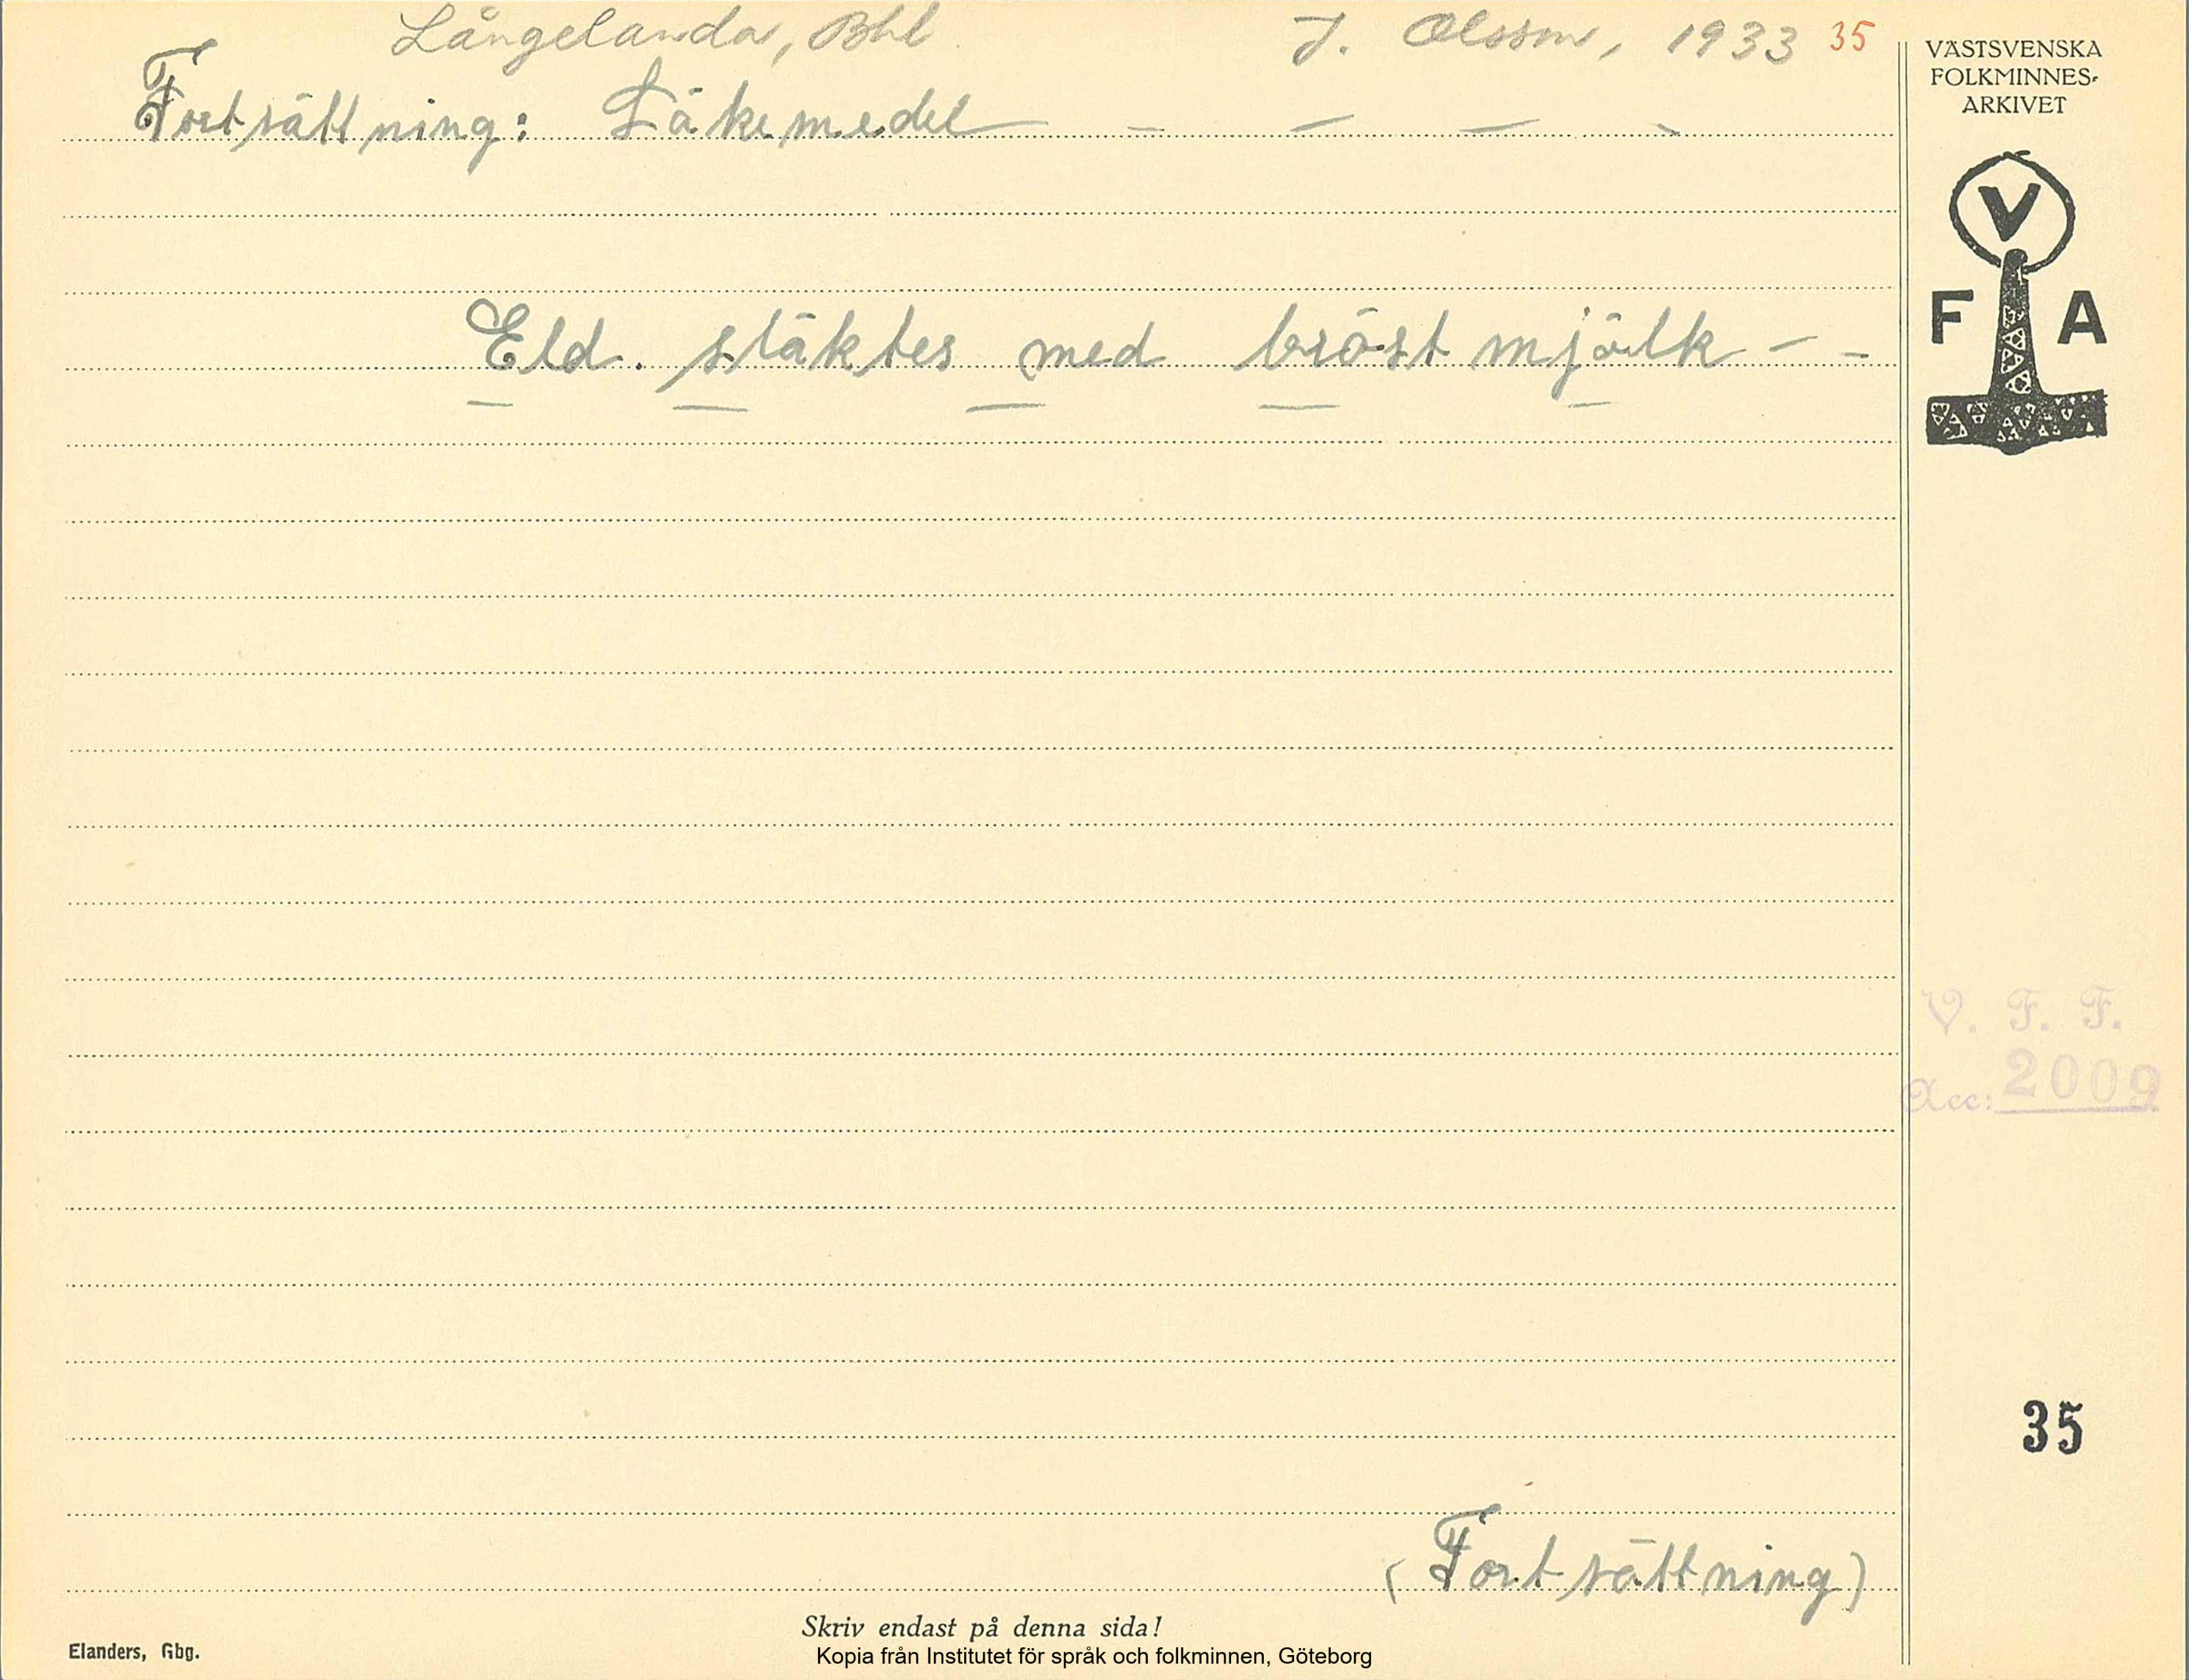 Långelanda, Bhl J. Olsson, 1933 35
Fortsättning: Läkemedel — — — -
Eld. släktes med bröstmjölk - -
— — — — —
(Fortsättning)
Skriv endast på denna sida!
Elanders, Gbg.
Kopia från Institutet för språk och folkminnen, Göteborg
VÄSTSVENSKA
FOLKMINNES-
ARKIVET
V
F A
V. F. F.
Acc: 2009
35